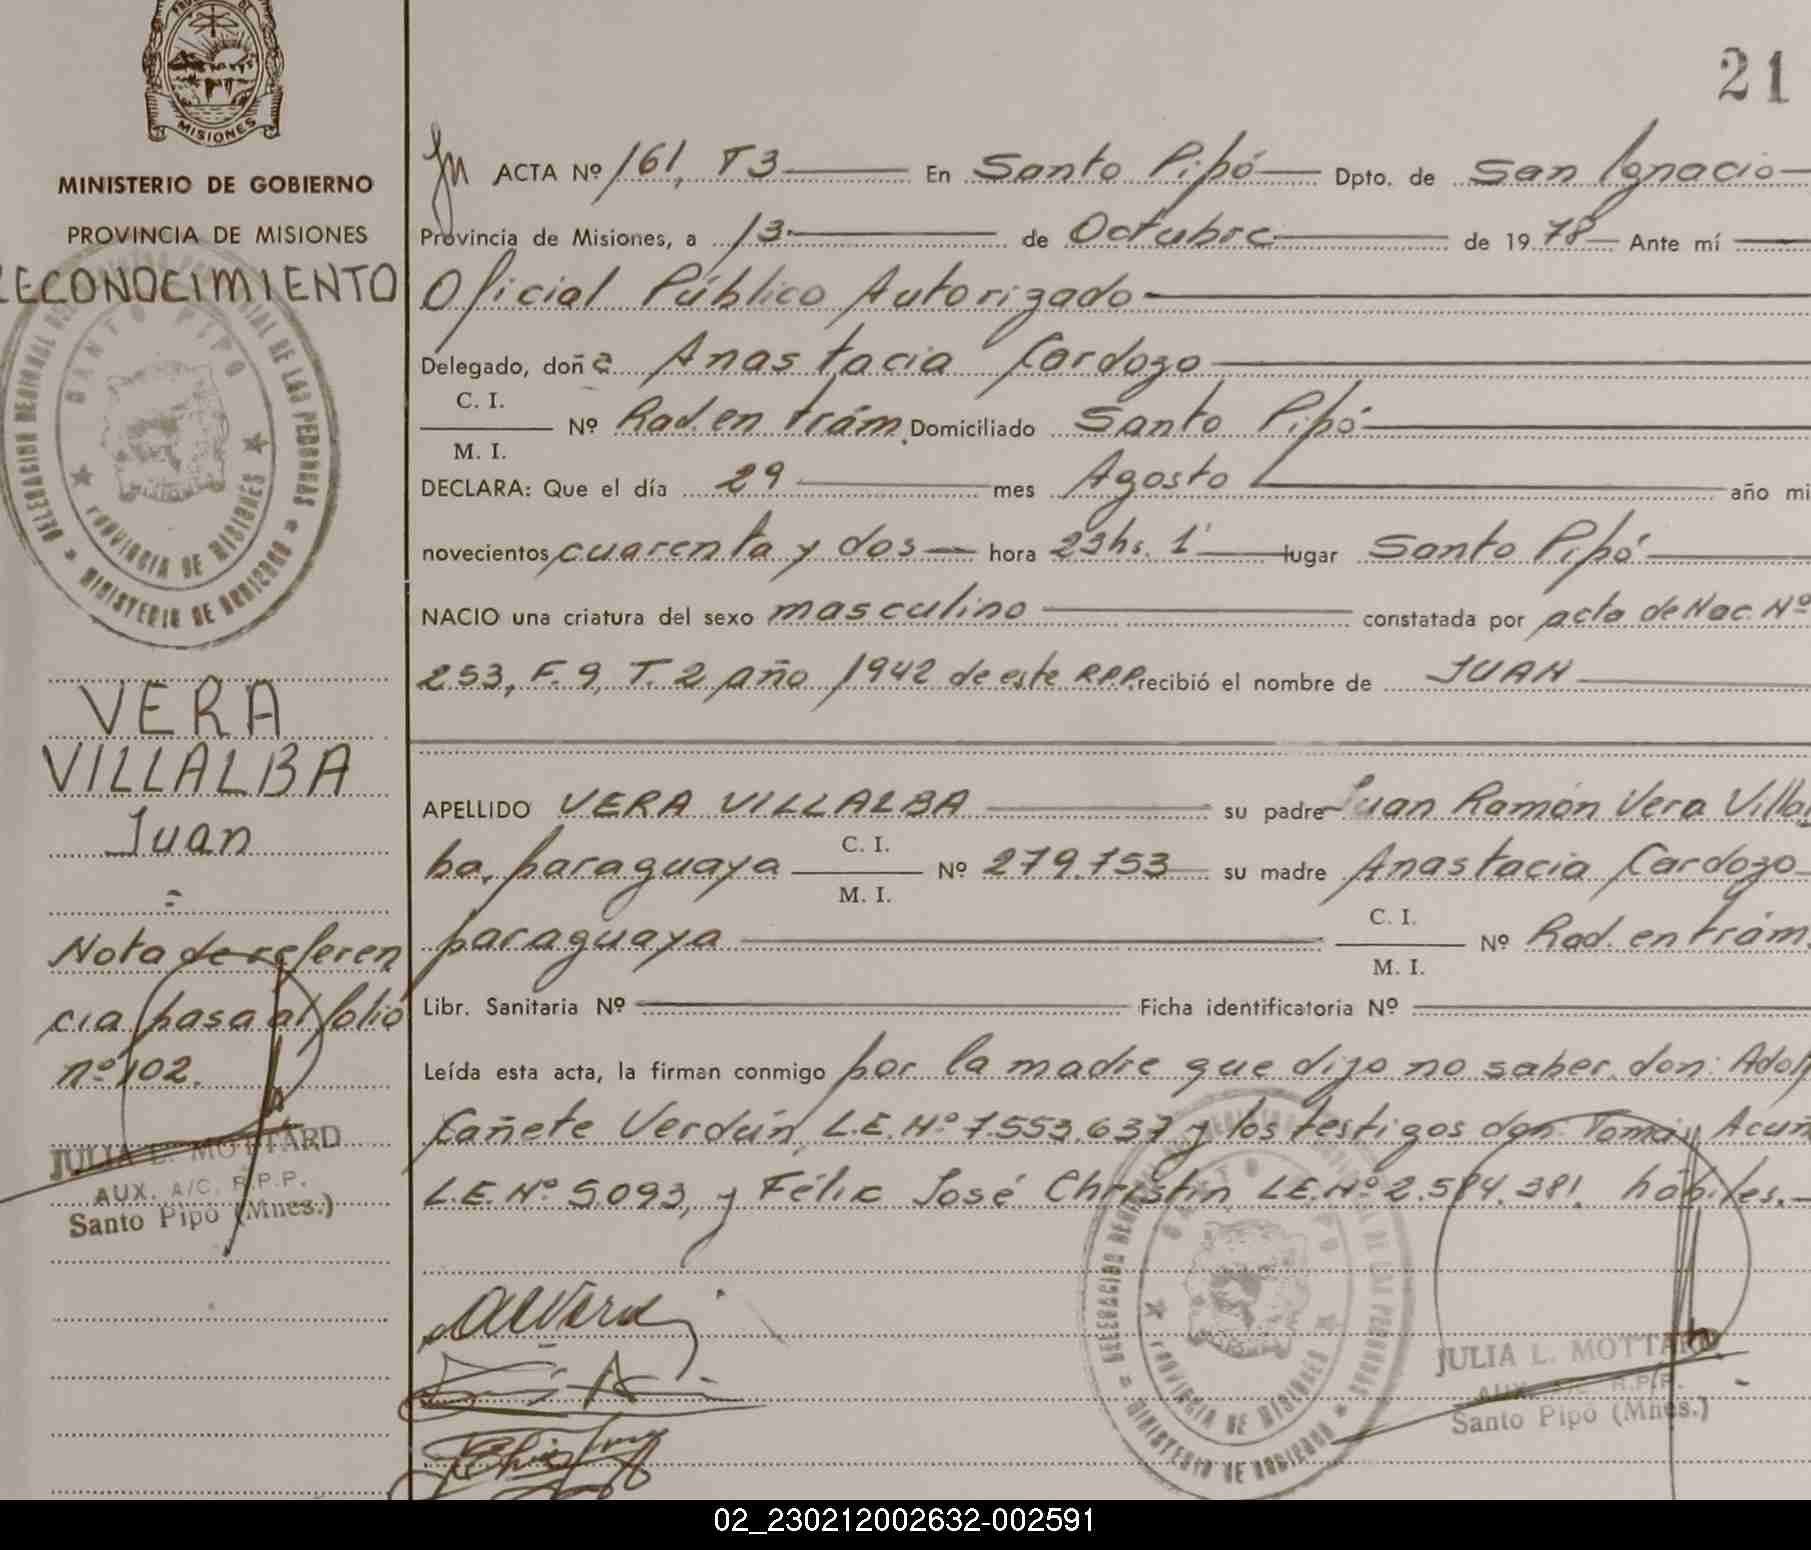 PROVINCIA DE
MISIONES
MINISTERIO DE GOBIERNO
PROVINCIA DE MISIONES
RECONOCIMIENTO
DELEGACION REGIONAL REGISTRO PROVINCIAL DE LAS PERSONAS
SANTO PIPO
PROVINCIA DE MISIONES
MINISTERIO DE GOBIERNO
VERA
VILLALBA
Juan
Nota de referen
cia pasa al folio
nº 102.
JULIA L. MOTTARD
AUX. A/C. R.P.P.
Santo Pipó (Mnes.)
21
ACTA Nº 161, T3 En Santo Pipó Dpto. de San Ignacio
Provincia de Misiones, a 13 de Octubre de 1978 Ante mí
Oficial Público Autorizado
Delegado, doña Anastacia Cardozo
C. I.
Nº Rad. en trám. Domiciliado Santo Pipó
M. I.
DECLARA: Que el día 29 mes Agosto año mi
novecientos cuarenta y dos hora 23hs. 1' lugar Santo Pipó
NACIO una criatura del sexo masculino constatada por acta de Nac. Nº
253, F. 9, T. 2 año 1942 de este R.P.P. recibió el nombre de JUAN
APELLIDO VERA VILLALBA su padre Juan Ramón Vera Villal
ba, paraguaya C. I. Nº 279.753 su madre Anastacia Cardozo
M. I.
paraguaya C. I. Nº Rad. en trám.
M. I.
Libr. Sanitaria Nº Ficha identificatoria Nº
Leída esta acta, la firman conmigo por la madre que dijo no saber, don: Adolf
Cañete Verdún, L.E. Nº 7.553.637 y los testigos don: Tomas Acuñ
L.E. Nº 5.093, y Félix José Christin L.E. Nº 2.584.381. hábiles.
DELEGACION REGIONAL REGISTRO PROVINCIAL DE LAS PERSONAS
SANTO PIPO
PROVINCIA DE MISIONES
MINISTERIO DE GOBIERNO
JULIA L. MOTTARD
AUX. A/C. R.P.P.
Santo Pipó (Mnes.)
02_230212002632-002591